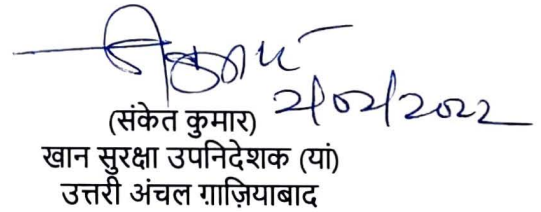 2/02/2022
(संकेत कुमार)
खान सुरक्षा उपनिदेशक (यां)
उत्तरी अंचल ग़ाज़ियाबाद